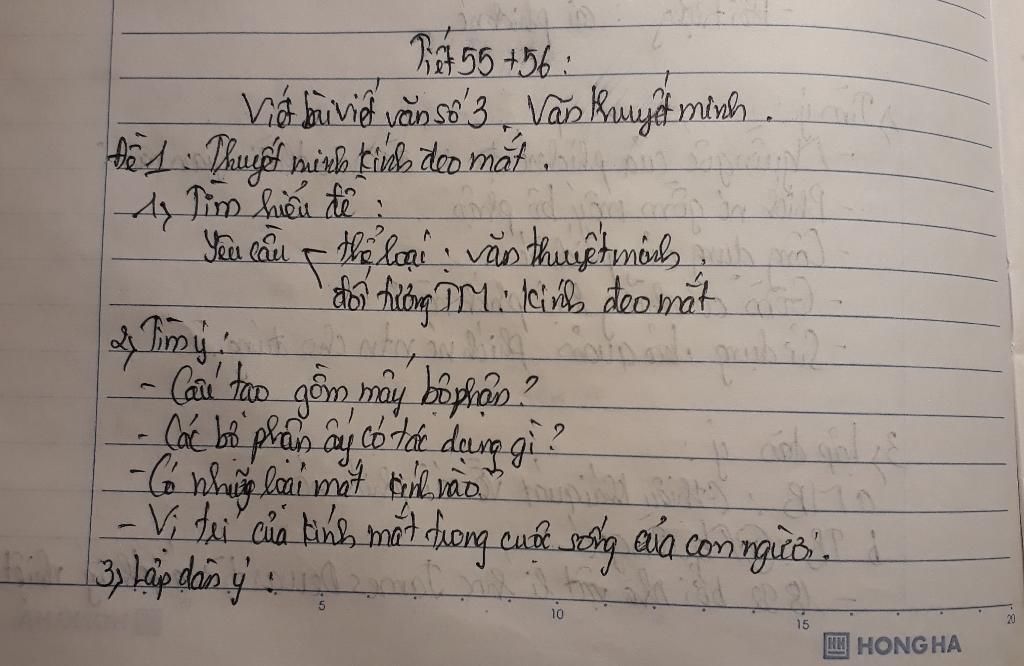 Tiết 55 + 56 :
Viết bài viết văn số 3. Văn thuyết minh.
Đề 1 : Thuyết minh kính đeo mắt.
1, Tìm hiểu đề :
Yêu cầu thể loại : văn thuyết minh.
đối tượng TM : kính đeo mắt
2, Tìm ý :
- Cấu tạo gồm mấy bộ phận ?
- Các bộ phận ấy có tác dụng gì ?
- Có những loại mắt kính nào ?
- Vị trí của kính mắt trong cuộc sống của con người.
3, Lập dàn ý :
5 10 15 20
HH HONG HA